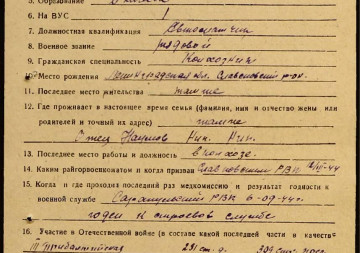 5. Образование
6. На ВУС 1
7. Должностная квалификация
8. Военное звание рядовой
9. Гражданская специальность Колхозник
10. Место рождения Ленинградская обл. р-он.
11. Последнее место жительства
12. Где проживает в настоящее время семья (фамилия, имя и отчество жены или
родителей и точный их адрес)
Отец Наумов Ник. Ник.
13. Последнее место работы и должность в колхозе.
14. Каким райгорвоенкоматом и когда призван РВК
15. Когда и где проходил последний раз медкомиссию и результат годности к
военной службе РВК 6-09-44г.
годен к строевой службе
16. Участие в Отечественной войне (в составе какой последней части и в качестве
III Прибалтийская